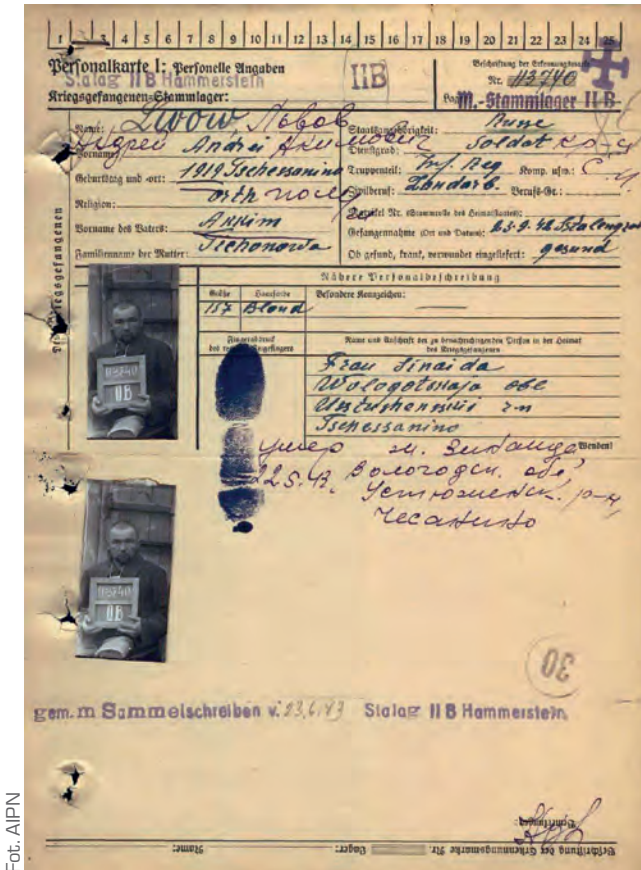 1 2 3 4 5 6 7 8 9 10 11 12 13 14 15 16 17 18 19 20 21 22 23 24 25
Personalkarte I: Personelle Angaben
Stalag II B Hammerstein
Kriegsgefangenen-Stammlager:
IIB
Beschriftung der Erkennungsmarke
Nr. 113740
Lager: M.-Stammlager II B
Name: Lwow Львов
Vorname: Андрей Andrei Акимович
Geburtstag und -ort: 1919 Tschessanino
Religion: orth
Vorname des Vaters: Akkim
Familienname der Mutter: Tichonowa
Staatsangehörigkeit: Russe
Dienstgrad: Soldat кр-ц
Truppenteil: Inf. Reg Komp. usw.: С.П.
Zivilberuf: Landarb. Berufs-Gr.:
Matrikel Nr. (Stammrolle des Heimatstaates):
Gefangennahme (Ort und Datum): 23.9.42 Stalingrad
Ob gesund, krank, verwundet eingeliefert: gesund
Des Kriegsgefangenen
Nähere Personalbeschreibung
Größe Haarfarbe Besondere Kennzeichen:
157 Blond
Fingerabdruck des rechten Zeigefingers
Name und Anschrift der zu benachrichtigenden Person in der Heimat des Kriegsgefangenen
Frau Sinaida
Wologotskaja obl
Tschessanino
Wenden!
умер ж. Зинаида
22.5.43. Вологодск. обл,
Устюженск. р-н,
Чесанино
113740
IIB
113740
IIB
30
gem. m Sammelschreiben v. 23.6.43 Stalag II B Hammerstein
Bemerkungen:
Beschriftung der Erkennungsmarke Nr. Lager: Name:
Fot. AIPN